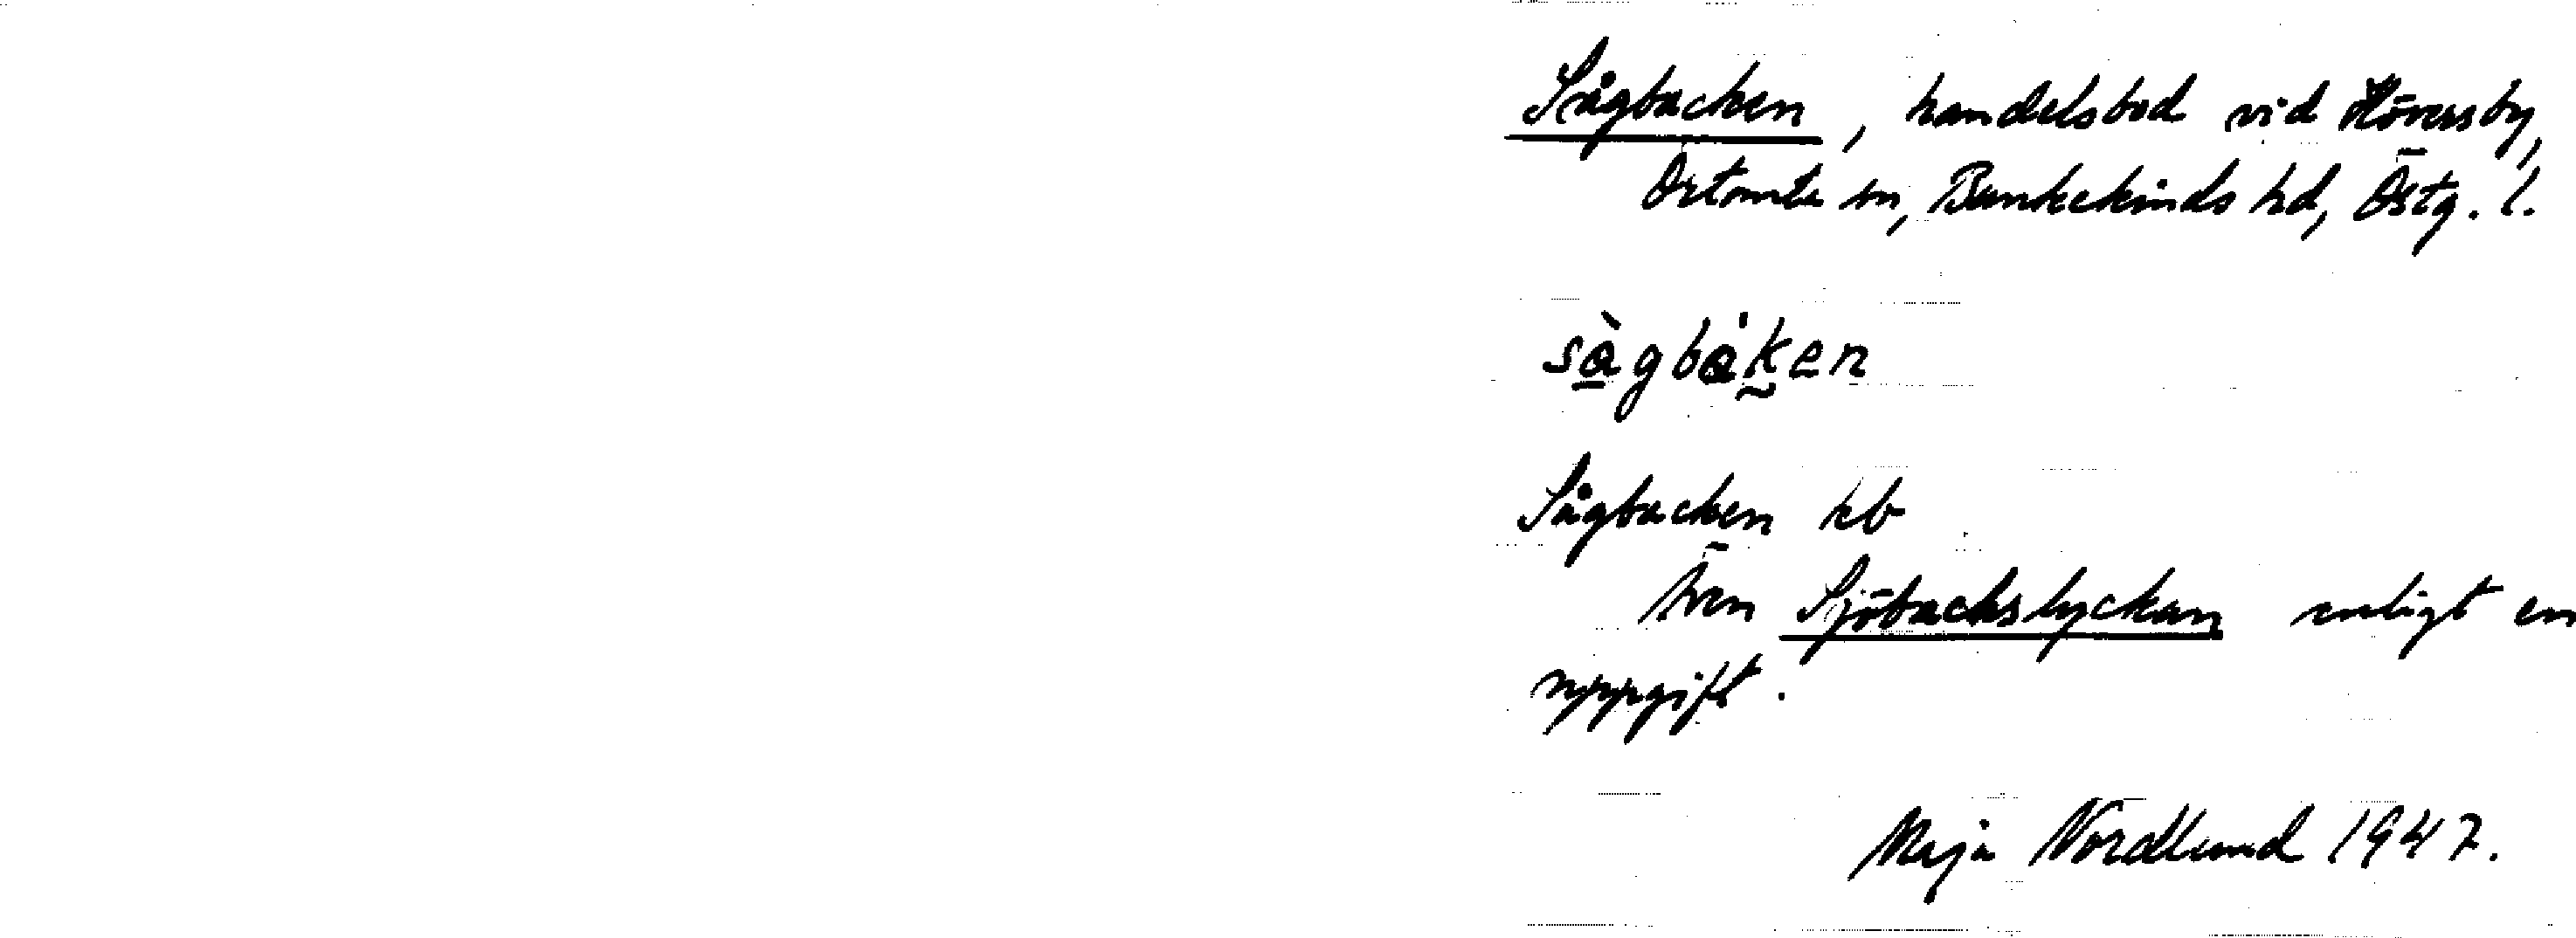 Sågbacken, handelsbod vid Höversby,
Örtomta sn, Bankekinds hd, Östg. l.
sàgbàken
Sågbacken kb
Även Sjöbackslyckan enligt en
uppgift.
Maja Nordlund 1947.